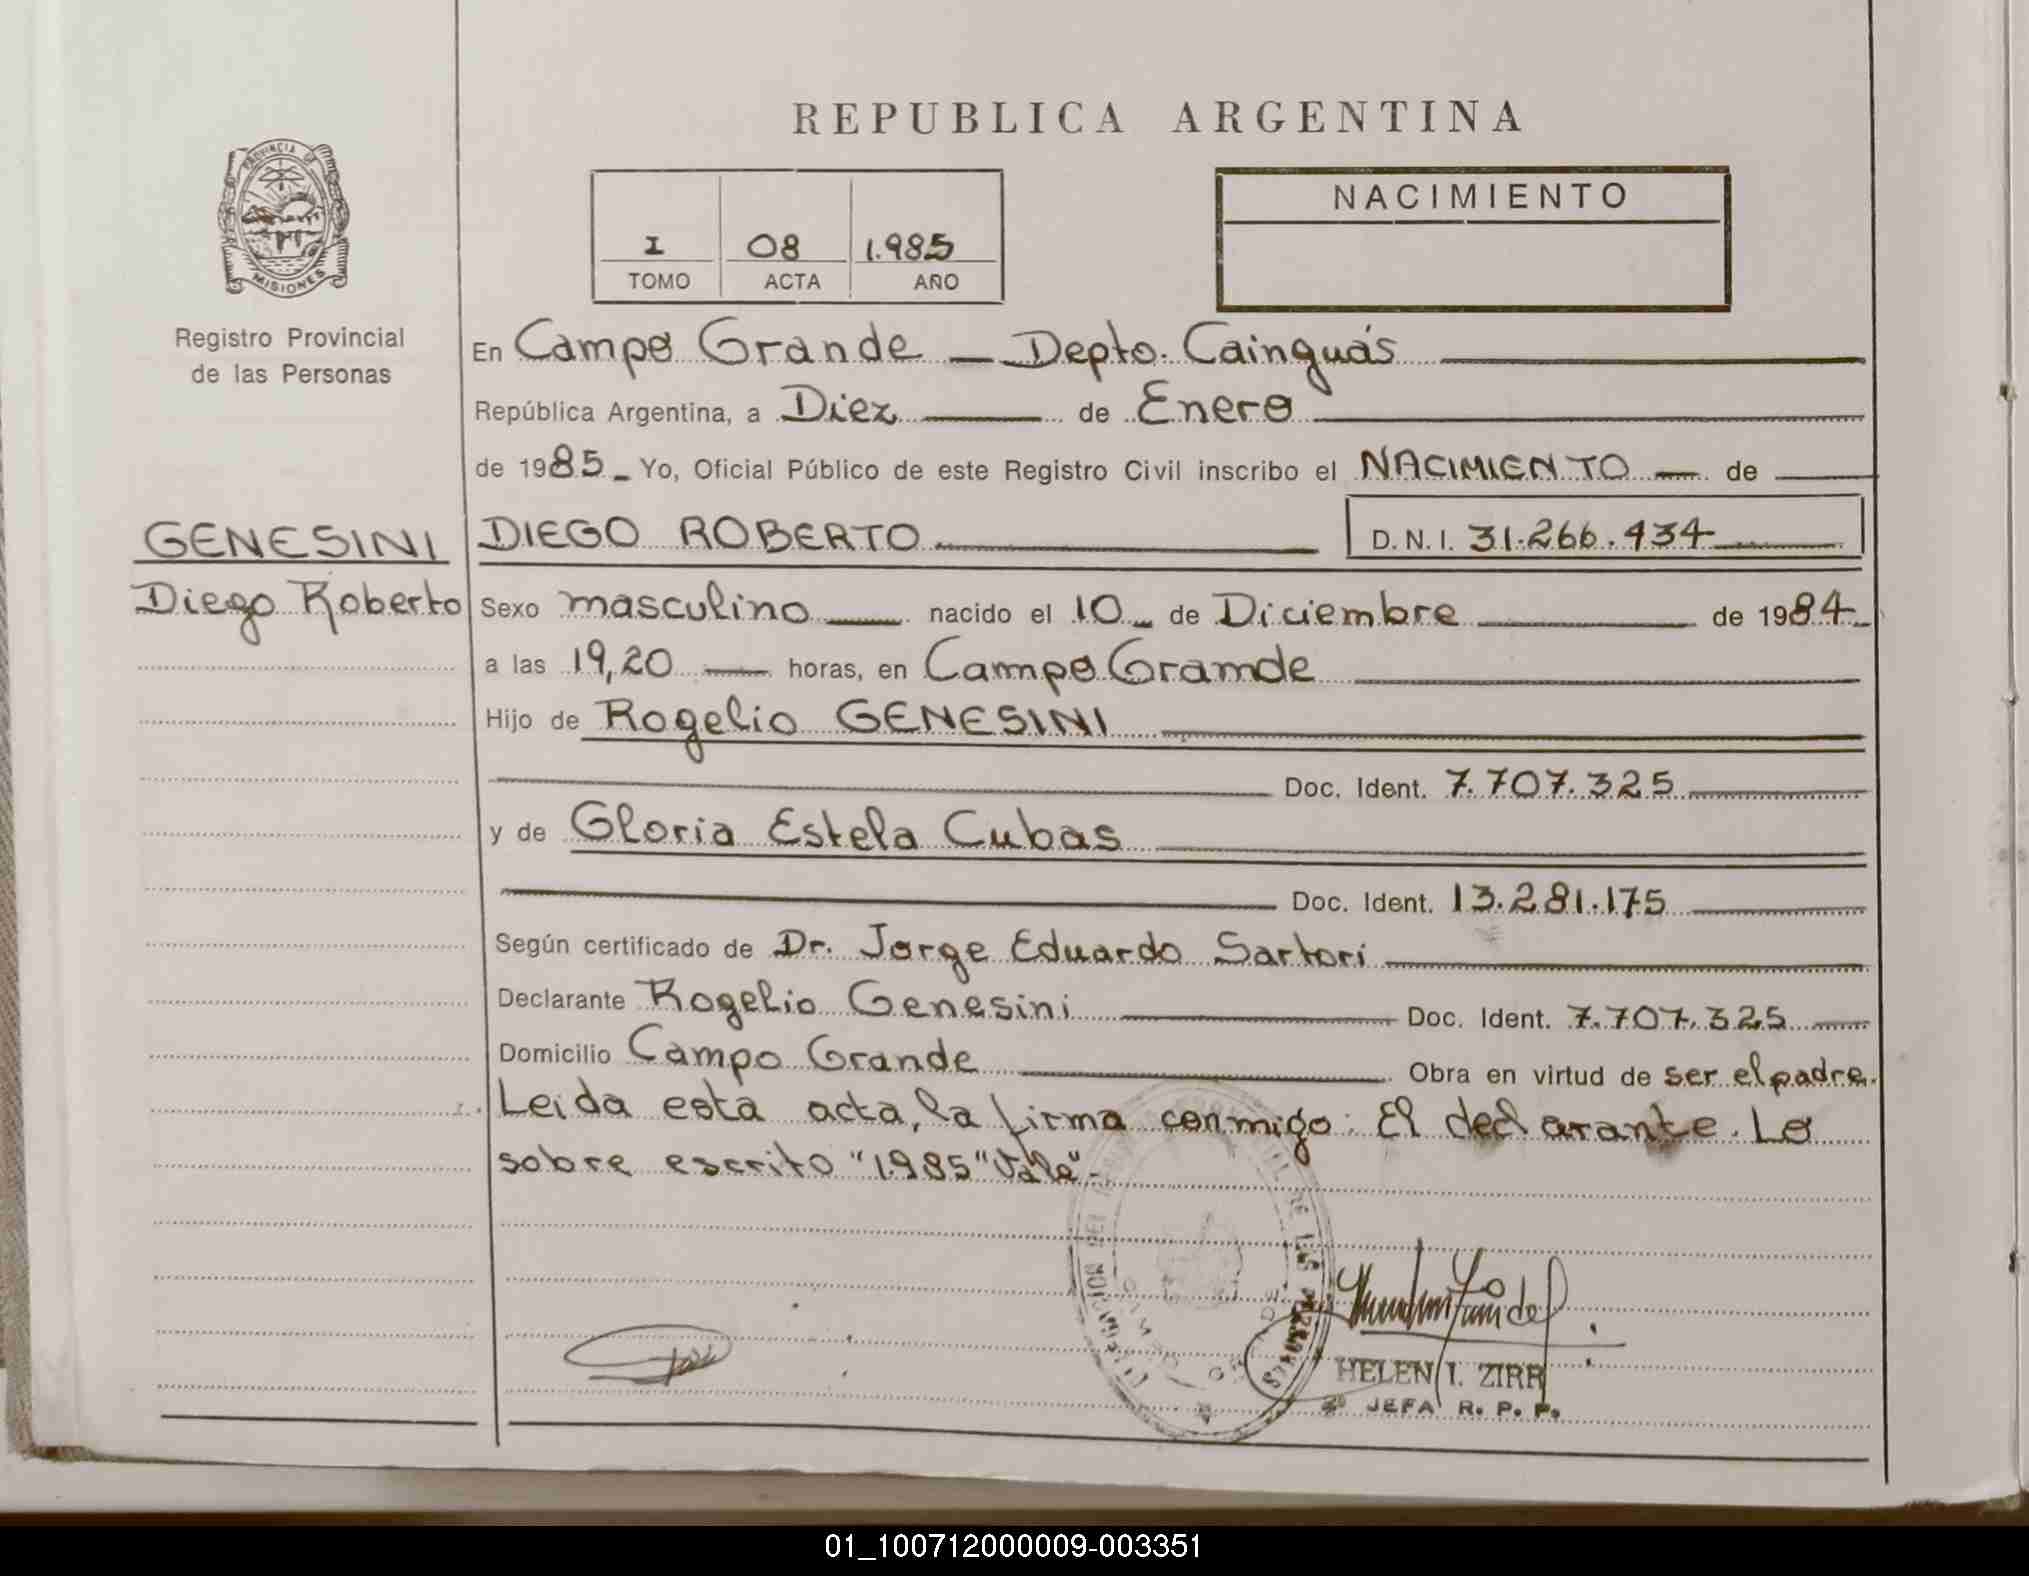 REPUBLICA ARGENTINA
PROVINCIA DE
MISIONES
Registro Provincial
de las Personas
I 08 1.985
TOMO ACTA AÑO
NACIMIENTO
En Campo Grande — Depto. Cainguás
República Argentina, a Diez de Enero
de 1985 _ Yo, Oficial Público de este Registro Civil inscribo el NACIMIENTO — de
GENESINI DIEGO ROBERTO D.N.I. 31.266.434
Diego Roberto Sexo masculino nacido el 10 _ de Diciembre de 1984
a las 19,20 horas, en Campo Gramde
Hijo de Rogelio GENESINI
Doc. Ident. 7.707.325
y de Gloria Estela Cubas
Doc. Ident. 13.281.175
Según certificado de Dr. Jorge Eduardo Sartori
Declarante Rogelio Genesini Doc. Ident. 7.707.325
Domicilio Campo Grande Obra en virtud de ser el padre.
Leida esta acta, la firma conmigo: El declarante. Lo
sobre escrito "1.985" Vale"
HELEN I. ZIRR
JEFA R. P. P.
01_100712000009-003351